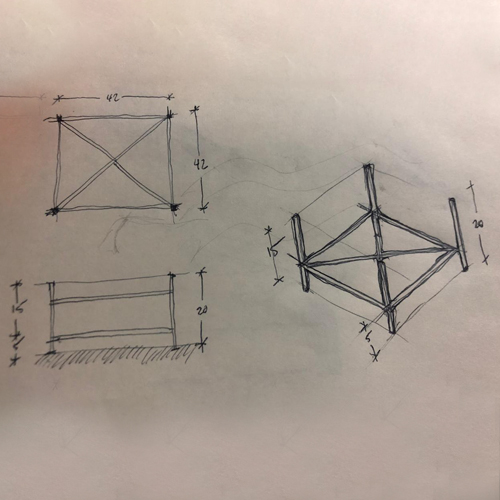 42
42
15
5
20
15
20
5